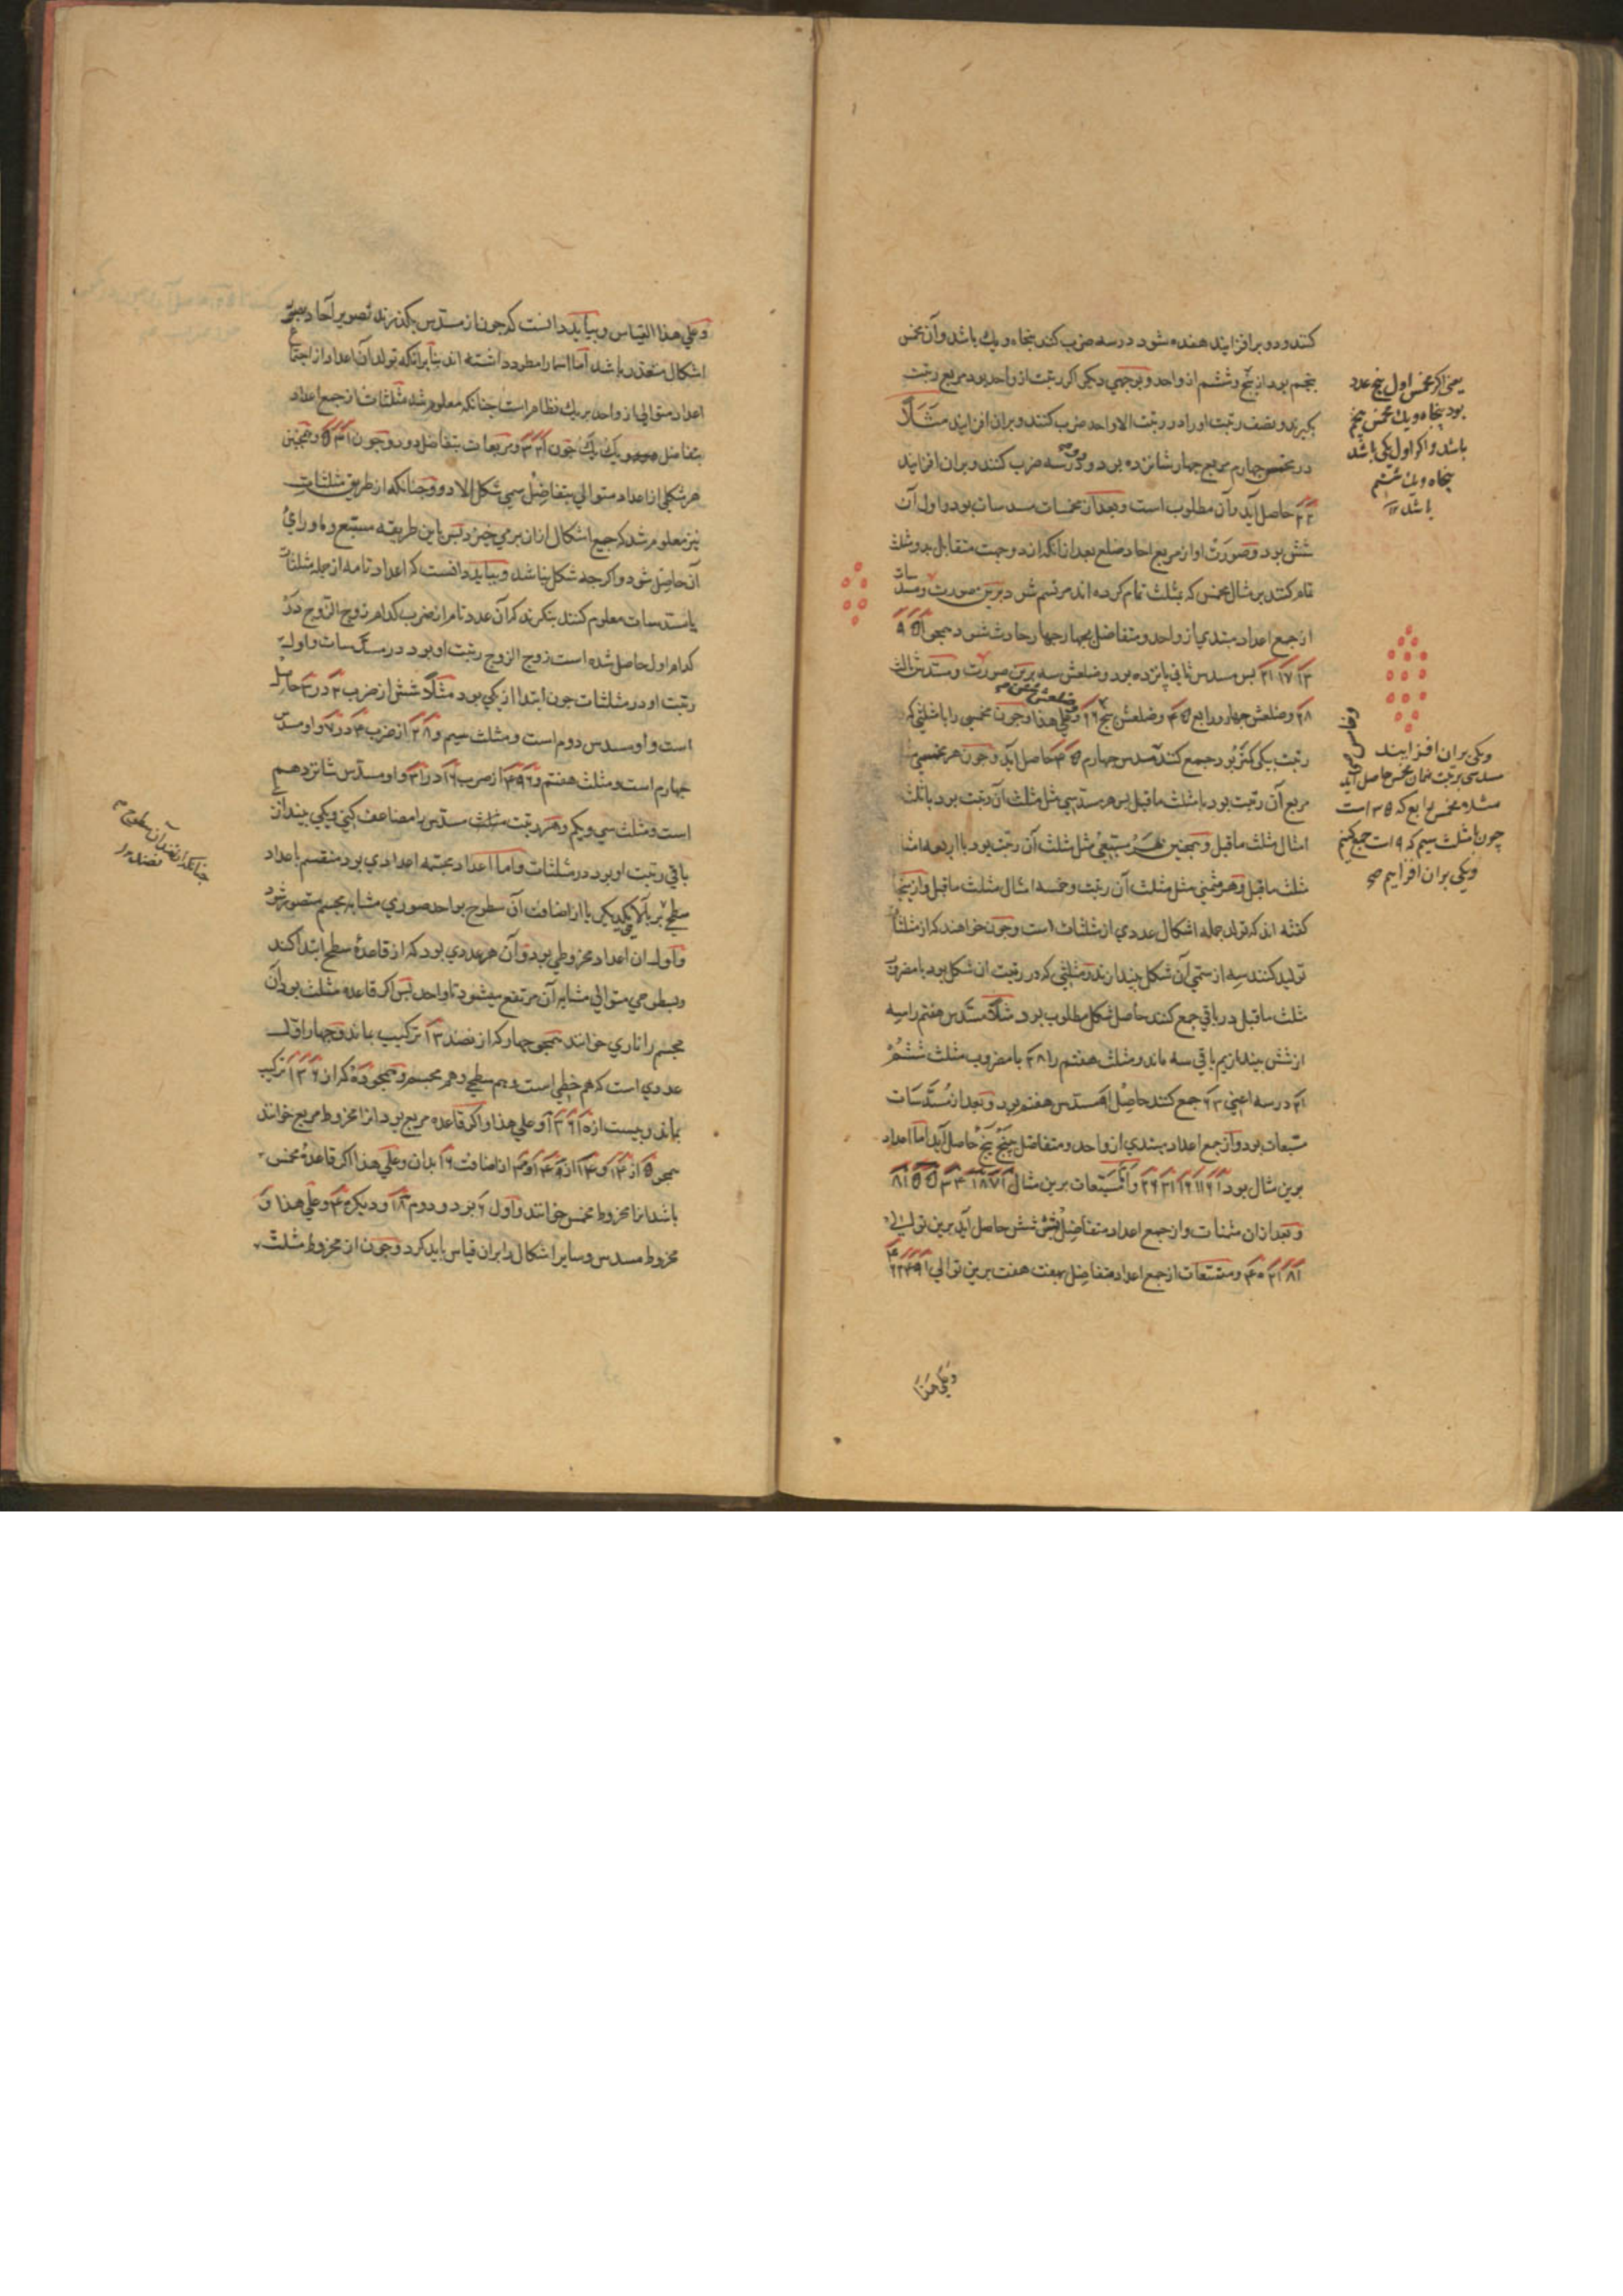 کنند و دو برافزایند هفده شود در سه ضرب کنند پنجاه و یک باشد و آن مخمس
پنجم بود از پنج و ششم از واحد و بوجهی دیکر اکر رتبت از واحد بود مربع رتبت
بکیرند و نصف رتبت او را در رتبت الا واحد ضرب کنند و بران افزایند مثلاً
در مخمس چهارم مربع چهار شانزده بود و دو در سه ضرب کنند و بران افزایند
۲۲ حاصل آید و آن مطلوب است و بعد از مخمسات مسدسات بود و اول آن
شش بود و صورت او از مربع احاد ضلع بعد از آنکه از دو جهت متقابل بدو مثلث
تمام کنند بر مثال مخمس که بمثلث تمام کرده اند مرتسم شود برین صورت و مسدسات
از جمع اعداد مبتدی از واحد و متفاضل بچهار چهار حادث شود همچو ۱ ۵ ۹
۱۳ ۱۷ ۲۱ پس مسدس ثانی پانزده بود و ضلعش سه برین صورت و مسدس ثالث
۲۸ و ضلعش چهار و رابع ۴۵ و ضلعش پنج و علی هذا و چون مخمسی را با مثلثی که
رتبت بیکی کمتر بود جمع کنند مسدس چهارم ۴۵ حاصل آید و چون هر مخمسی مثل
مربع آن رتبت بود با مثلث ماقبل پس هر مسدسی مثل مثلث آن رتبت بود با ثلث
امثال مثلث ماقبل و همچنین هر مسبعی مثل مثلث آن رتبت بود با اربعه امثال
مثلث ماقبل و هر مثمنی مثل مثلث آن رتبت و خمسه امثال مثلث ماقبل و ازینجا
کفته اند که تولد جمله اشکال عددی از مثلثات است و چون خواهند که از مثلثات
تولید کنند سه از سمی آن شکل بیندازند و مثلثی که در رتبت ان شکل بود با مضروب
مثلث ماقبل در باقی جمع کنند حاصل شکل مطلوب بود مثلاً مسدس هفتم را سه
از شش بیندازیم باقی سه ماند و مثلث هفتم را ۲۸ با مضروب مثلث ششم
۲۱ در سه اعنی ۶۳ جمع کنند حاصل ۹۱ مسدس هفتم بود و بعد از مسدسات
مسبعات بود و از جمع اعداد مبتدی از واحد و متفاضل بپنج پنج حاصل آید اما اعداد
برین مثال بود ۱ ۶ ۱۱ ۱۶ ۲۱ ۲۶ و اما مسبعات برین مثال ۱ ۷ ۱۸ ۳۴ ۵۵ ۸۱
و بعد ازان مثمنات و از جمع اعداد متفاضل بشش شش حاصل آید برین توالی
۱ ۸ ۲۱ ۴۰ و متسعات از جمع اعداد متفاضل بهفت هفت برین توالی ۱ ۹ ۲۴ ۴۶
و علی هذا
یعنی اکر مخمس اول پنج عدد
بود پنجاه و یک مخمس پنجم
باشد و اکر اول یکی باشد
پنجاه و یک ششم
باشد
و یکی بران افزایند
مسدسی برتبت همان مخمس حاصل آید
مثلا مخمس رابع که ۳۵ است
چون با مثلث سیم که ۹ است جمع کنیم
و یکی بران افزاییم صح
و علی هذا القیاس و بباید دانست که چون از مسدس بکذرند تصویر آحاد بعینی
اشکال متعذر باشد اما اسما را مطرد داشته اند بنا برانکه تولد آن اعداد از اجتماع
اعداد متوالی از واحد بر یک نظام است چنانکه معلوم شد مثلثات از جمع اعداد
متفاضل بیک یک چون ۱ ۲ ۳ و مربعات بتفاضل دو دو چون ۱ ۳ ۵ و همچنین
هر شکلی از اعداد متوالی بتفاضل سمی شکل الا دو و چنانکه از طریق مثلثات
نیز معلوم شد که جمیع اشکال ازان بر می خیزد پس باین طریقه مسبع و ماورای
آن حاصل شود و اکرچه شکل نباشد و بباید دانست که اعداد تامه از جمله مثلثات
یا مسدسات معلوم کنند بنکرند که آن عدد تام از ضرب کدام زوج الزوج در
کدام اول حاصل شده است زوج الزوج رتبت او بود در مسدسات و اول
رتبت او در مثلثات چون ابتدا از یکی بود مثلاً شش از ضرب ۲ در ۳ حاصل
است و او مسدس دوم است و مثلث سیم و ۲۸ از ضرب ۴ در ۷ و او مسدس
چهارم است و مثلث هفتم و ۴۹۶ از ضرب ۱۶ در ۳۱ و او مسدس شانزدهم
است و مثلث سی و یکم و هر رتبت مسدس را مضاعف کنی و یکی بیندازی
باقی رتبت او بود در مثلثات و اما اعداد مجسمه اعدادی بود منقسم باعداد
سطحی بر بالای یکدیکر یا از اضافت آن سطوح بواحد صوری مشابه مجسم متصور شود
و اول ان اعداد مخروطی بود و آن هر عددی بود که از قاعده سطح ابتدا کند
و بسطوحی متوالی مشابه آن مرتفع میشود تا واحد پس اکر قاعده مثلث بود آن
مجسم را ناری خوانند همچو چهار که از نضد ۳ ۱ ترکیب یابد و چهار اول
عددی است که هم خطی است و هم سطحی و هم مجسم و همچو ده که از ۶ ۳ ۱ ترکیب
یابد و بیست از ۱۰ ۶ ۳ ۱ و علی هذا و اکر قاعده مربع بود انرا مخروط مربع خوانند
همچو ۵ از ۴ ۱ و ۱۴ از ۹ ۴ ۱ و ۳۰ از اضافت ۱۶ بدان و علی هذا اکر قاعده مخمس
باشد انرا مخروط مخمس خوانند و اول ۶ بود و دوم ۱۸ و دیکر ۴۰ و علی هذا و
مخروط مسدس و سایر اشکال را بران قیاس باید کرد و چون از مخروط مثلث